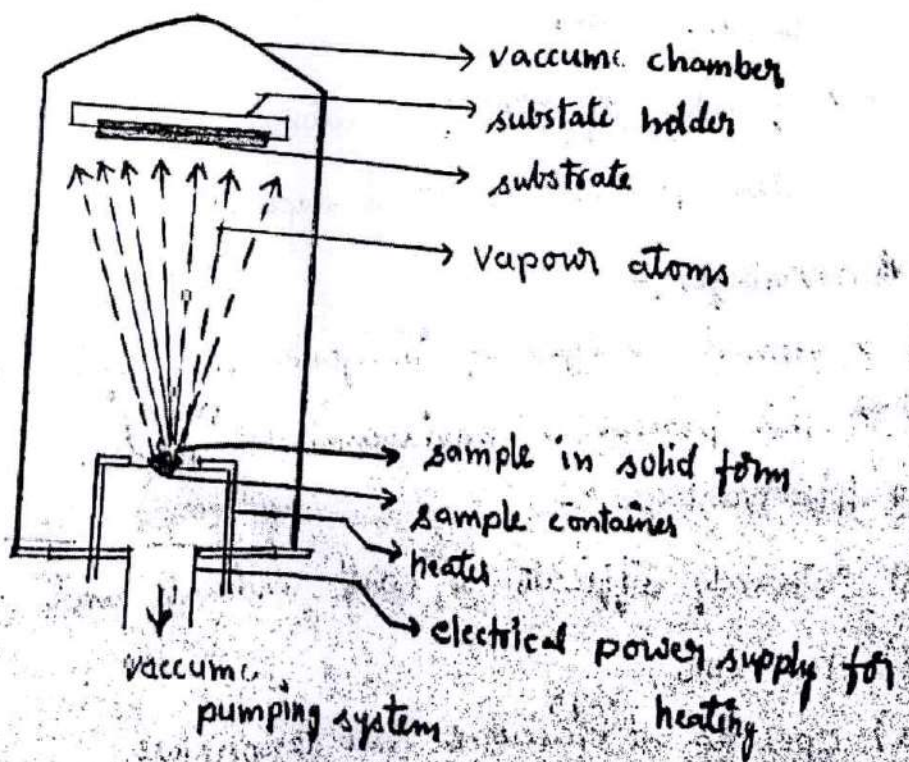 vaccume chamber
substate holder
substrate
vapour atoms
sample in solid form
sample container
heater
electrical power supply for
heating
vaccume
pumping system